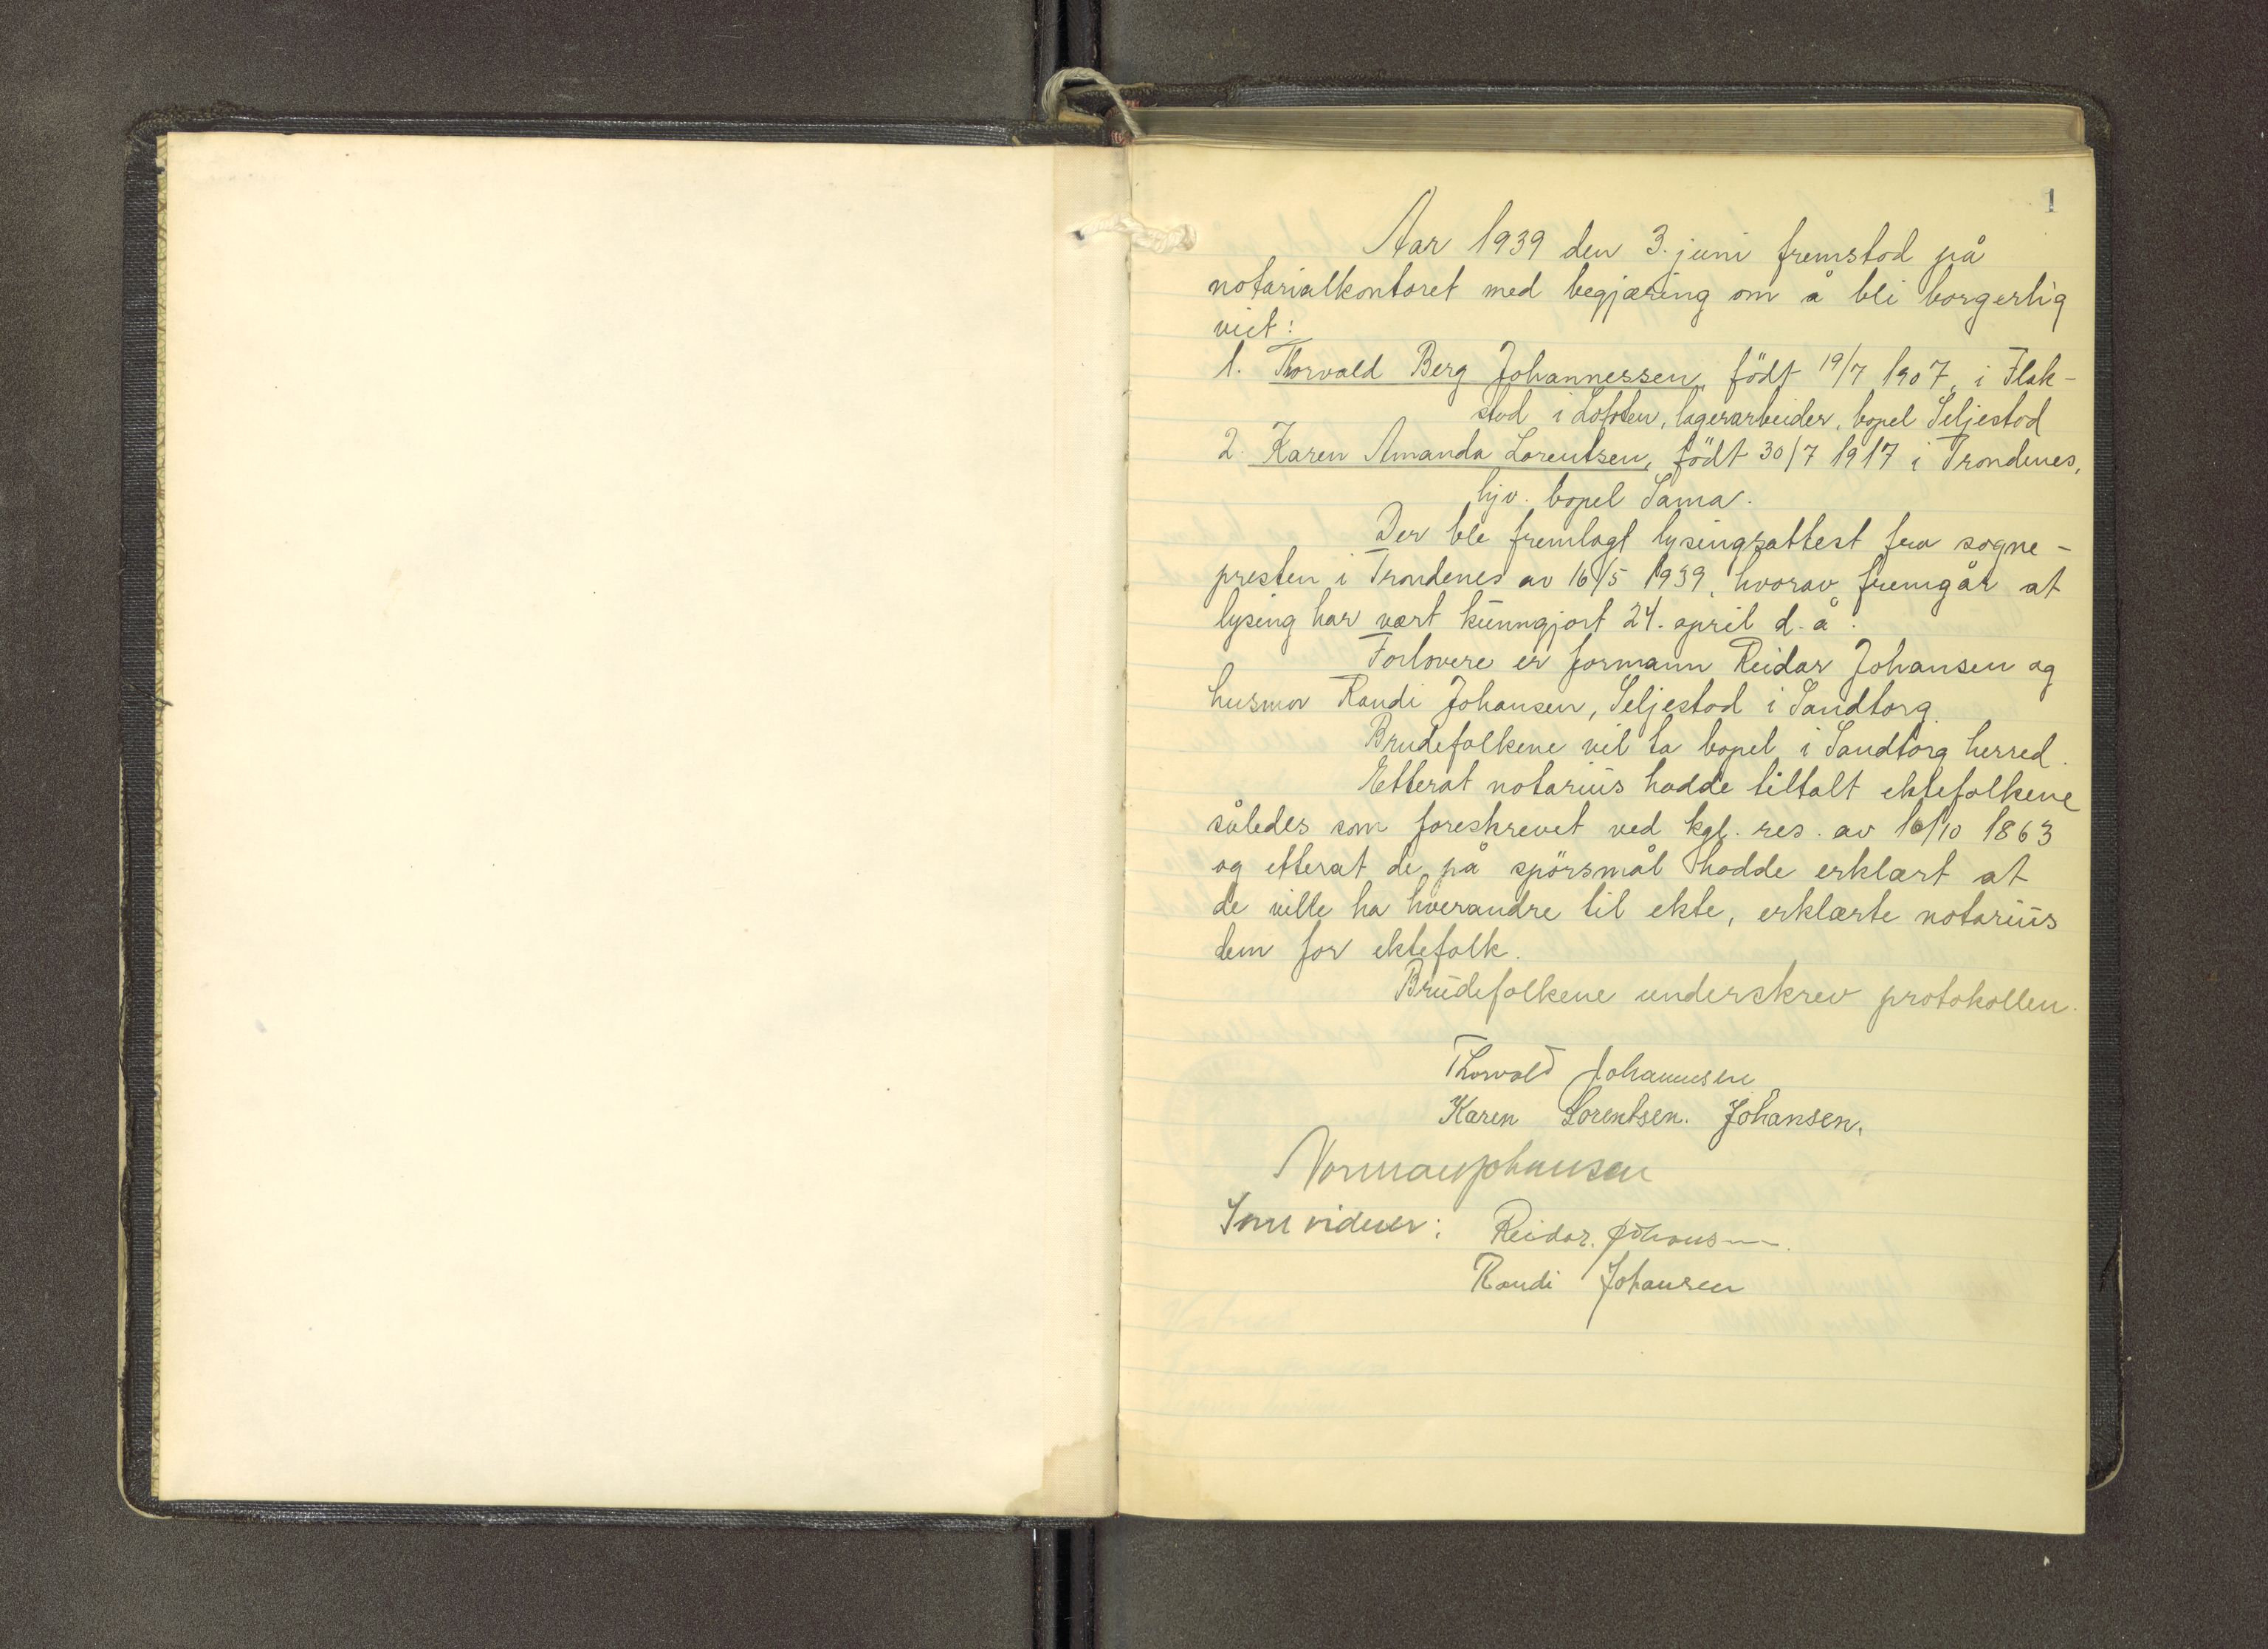 1
Aar 1939 den 3. juni fremstod på
notarialkontoret med begjæring om å bli borgerlig
viet:
1. Thorvald Berg Johannessen, födt 19/7 1907, i Flak-
stad i Lofoten, lagerarbeider, bopel Seljestad
2. Karen Amanda Lorentsen, födt 30/7 1917 i Trondenes,
hjv. bopel Sama.
Der ble fremlagt lysingsattest fra sogne-
presten i Trondenes av 16/5 1939, hvorav fremgår at
lysing har vært kunngjort 24. april d. å.
Forlovere er formann Reidar Johansen og
husmor Randi Johansen, Seljestad i Sandtorg.
Brudefolkene vil ta bopel i Sandtorg herred.
Etterat notarius hadde tiltalt ektefolkene
således som foreskrevet ved kgl. res. av 16/10 1863
og etterat de på spörsmål hadde erklært at
de ville ha hverandre til ekte, erklærte notarius
dem for ektefolk.
Brudefolkene underskrev protokollen.
Thorvald Johannesen
Karen Lorentsen. Johansen.
Norman Johansen
Som vidner: Reidar. Johansen.
Randi Johansen